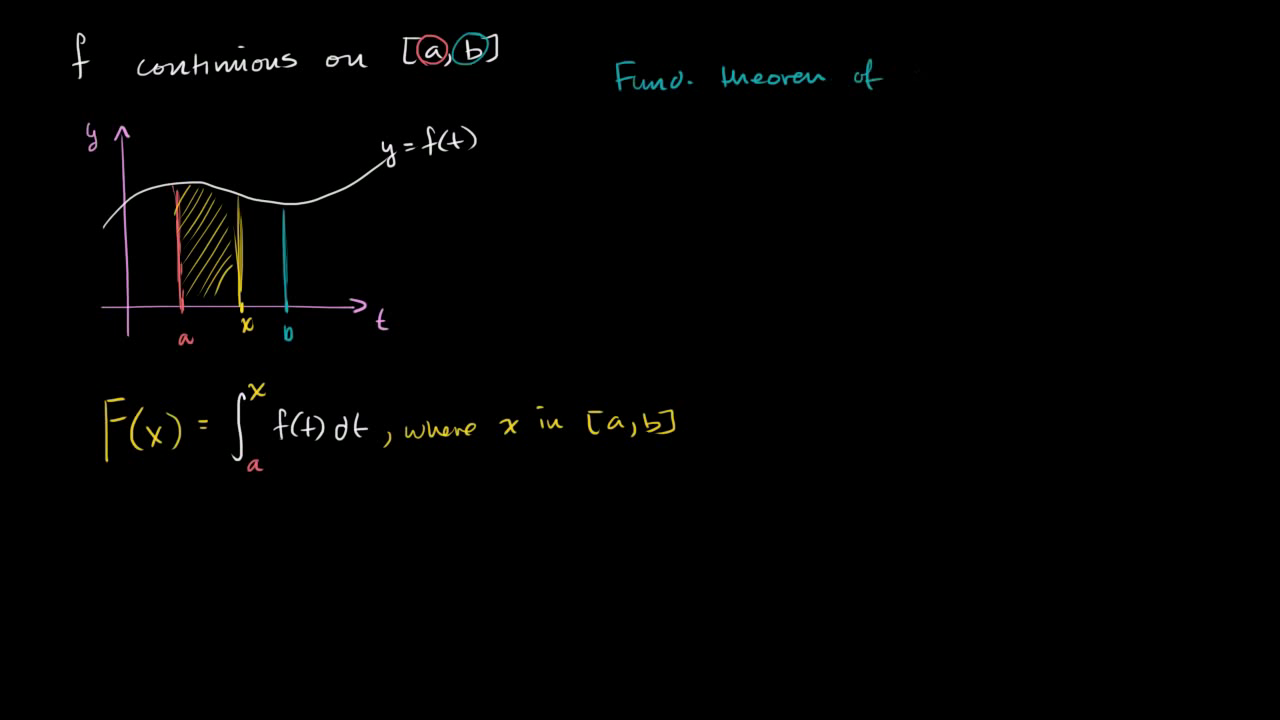 f continuous on [a,b]
Fund. theorem of
y
y = f(t)
a
x
b
t
F(x) = ∫ₐˣ f(t) dt, where x in [a,b]